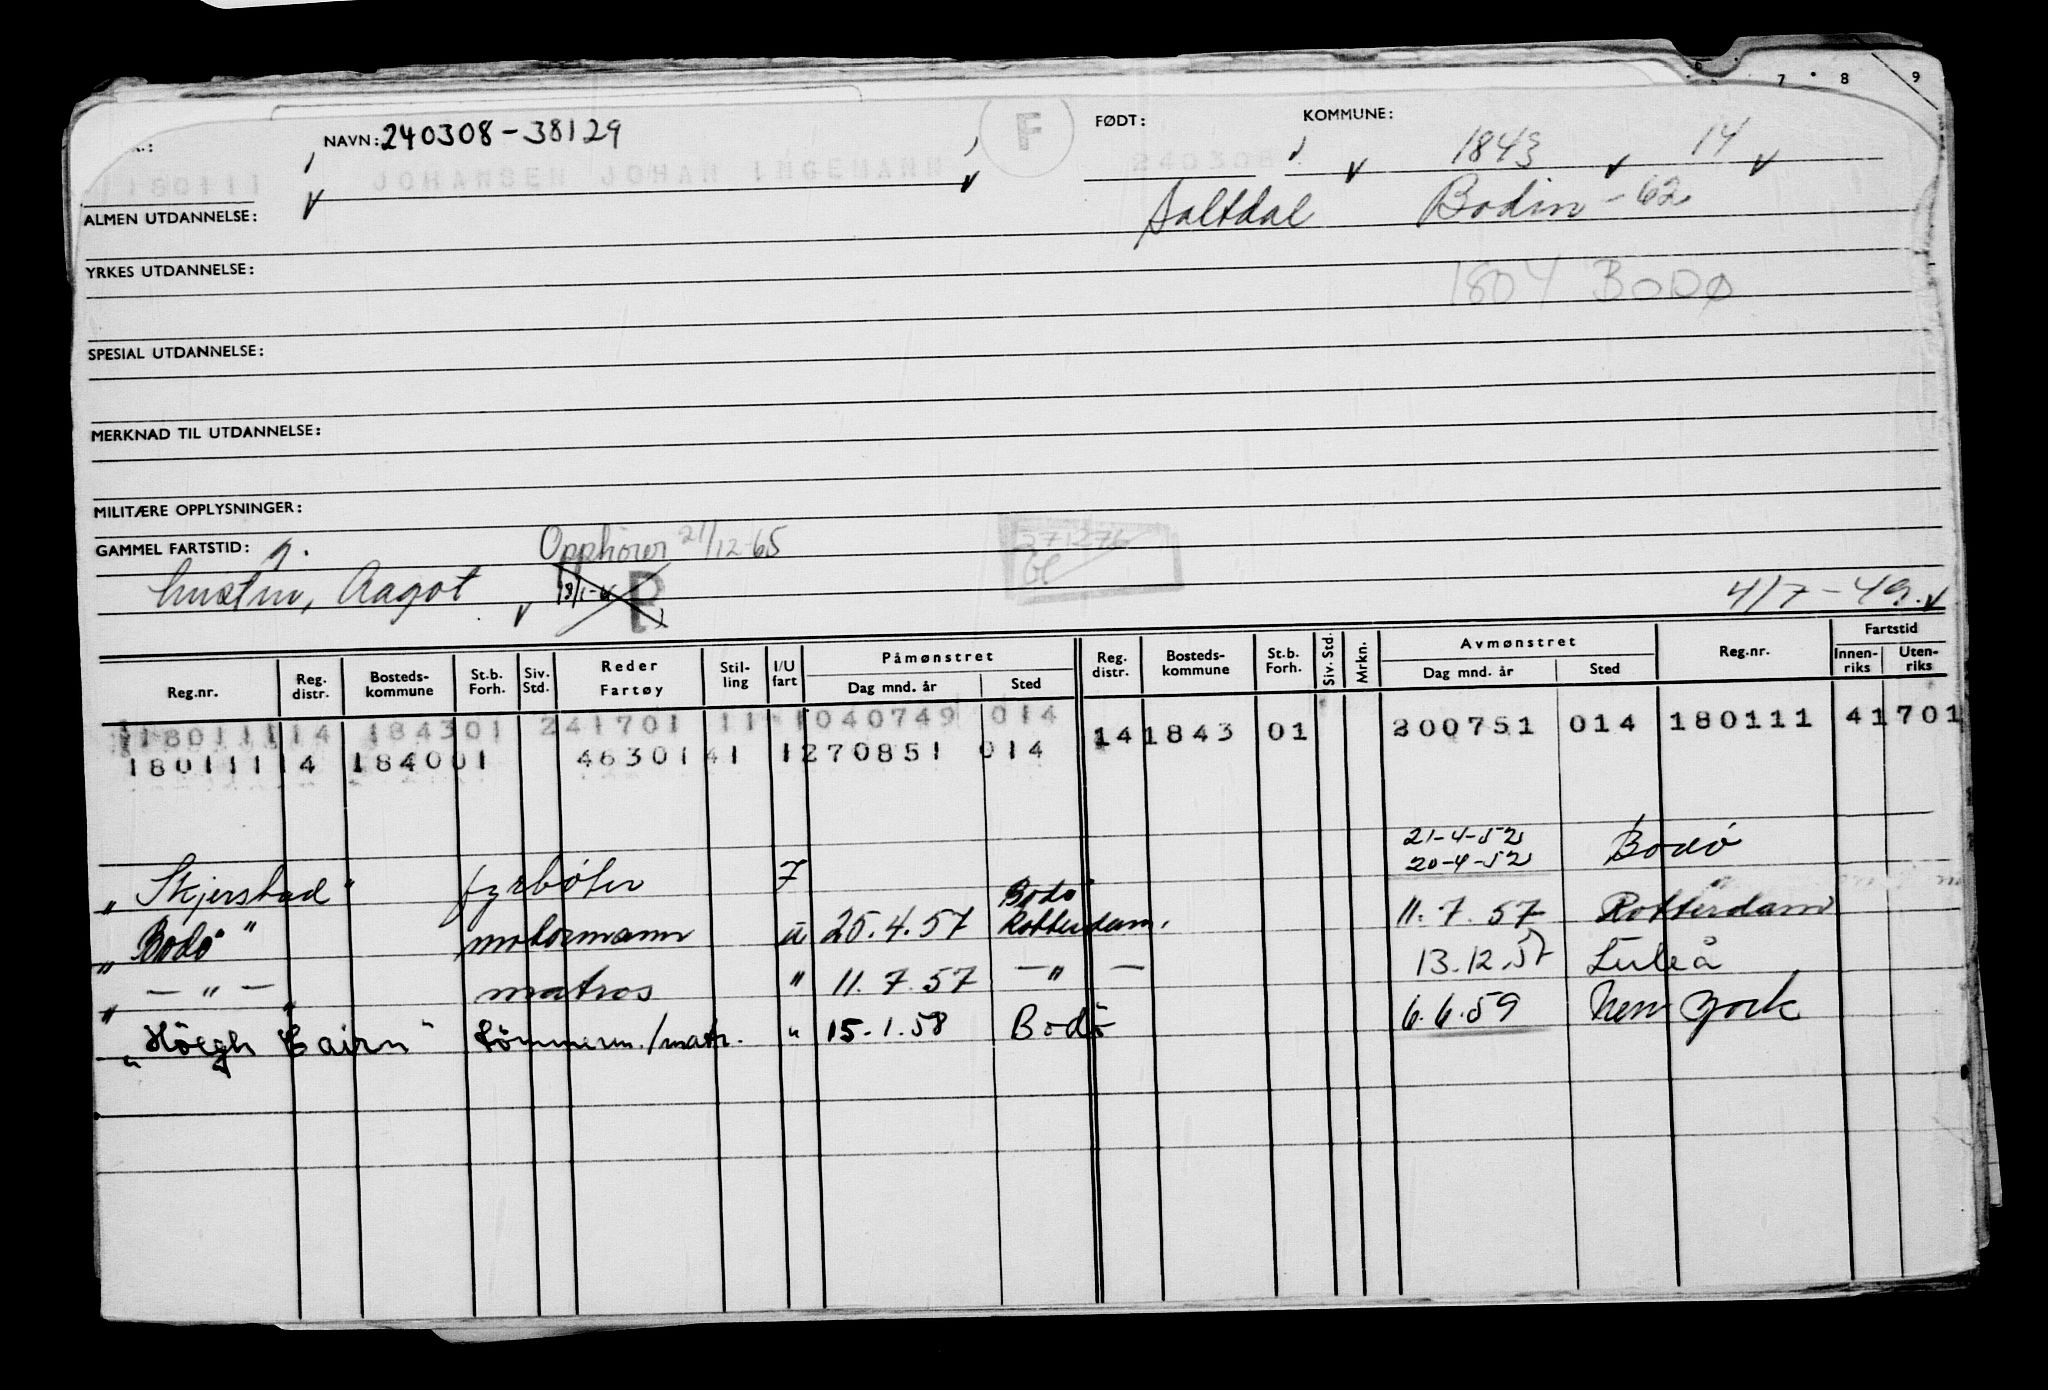 7 8 9
NAVN: 240308-38129 F FØDT: KOMMUNE:
180111 JOHANSEN JOHAN INGEMANN 240308 1843 14
ALMEN UTDANNELSE: Saltdal Bodin -62
YRKES UTDANNELSE: 1804 BODØ
SPESIAL UTDANNELSE:
MERKNAD TIL UTDANNELSE:
MILITÆRE OPPLYSNINGER:
GAMMEL FARTSTID: g. Opphører 21/12-65
hustru, Aagot 4/7-49.
Reg.nr. Reg. distr. Bosteds-kommune St.b. Forh. Siv. Std. Reder Fartøy Stil-ling I/U fart Påmønstret Dag mnd. år Sted Reg. distr. Bosteds-kommune St.b. Forh. Siv. Std. Mrkn. Avmønstret Dag mnd. år Sted Reg.nr. Fartstid Innen-riks Uten-riks
180111 14 1843 01 241701 11 1 040749 014 14 1843 01 200751 014 180111 41 701
180111 14 1840 01 46301 41 1 270851 014
21-4-52
" Skjerstad " fyrbøter 7 20-4-52 Bodø
Bodø
" Bodø " motormann u 25.4.57 Rotterdam. 11.7.57 Rotterdam
" — " — matros " 11.7.57 — " — 13.12.57 Luleå
" Höegh Cairn " tömmerm./matr. " 15.1.58 Bodö 6.6.59 New York